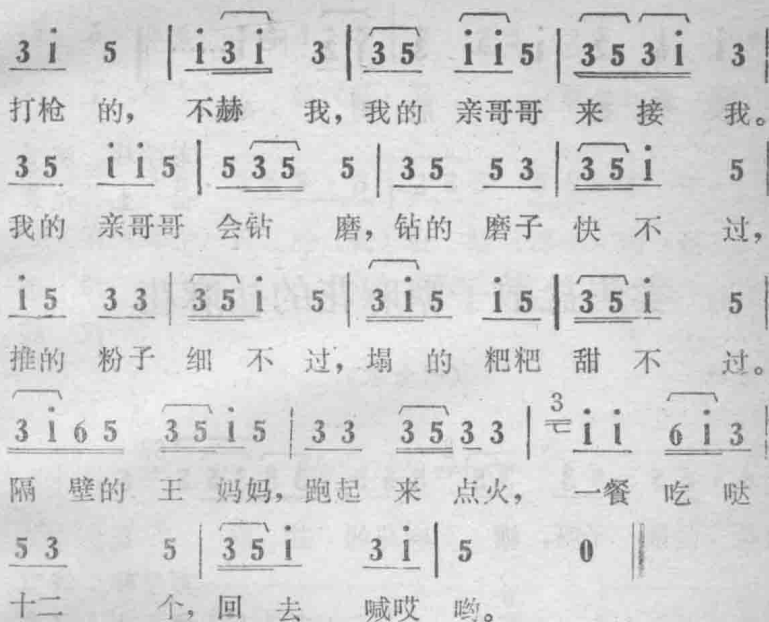 3 i 5 | i 3 i 3 | 3 5 i i 5 | 3 5 3 i 3 |
打枪 的， 不赫 我，我的 亲哥哥 来 接 我。
3 5 i i 5 | 5 3 5 5 | 3 5 5 3 | 3 5 i 5 |
我的 亲哥哥 会钻 磨，钻的 磨子 快 不 过，
i 5 3 3 | 3 5 i 5 | 3 i 5 i 5 | 3 5 i 5 |
推的 粉子 细 不 过，塌 的 粑粑 甜 不 过。
3 i 6 5 3 5 i 5 | 3 3 3 5 3 3 | 3 i i 6 i 3 |
隔 壁的 王 妈妈，跑起 来 点火， 一餐 吃 哒
5 3 5 | 3 5 i 3 i | 5 0 ‖
十二 个，回 去 喊哎 哟。